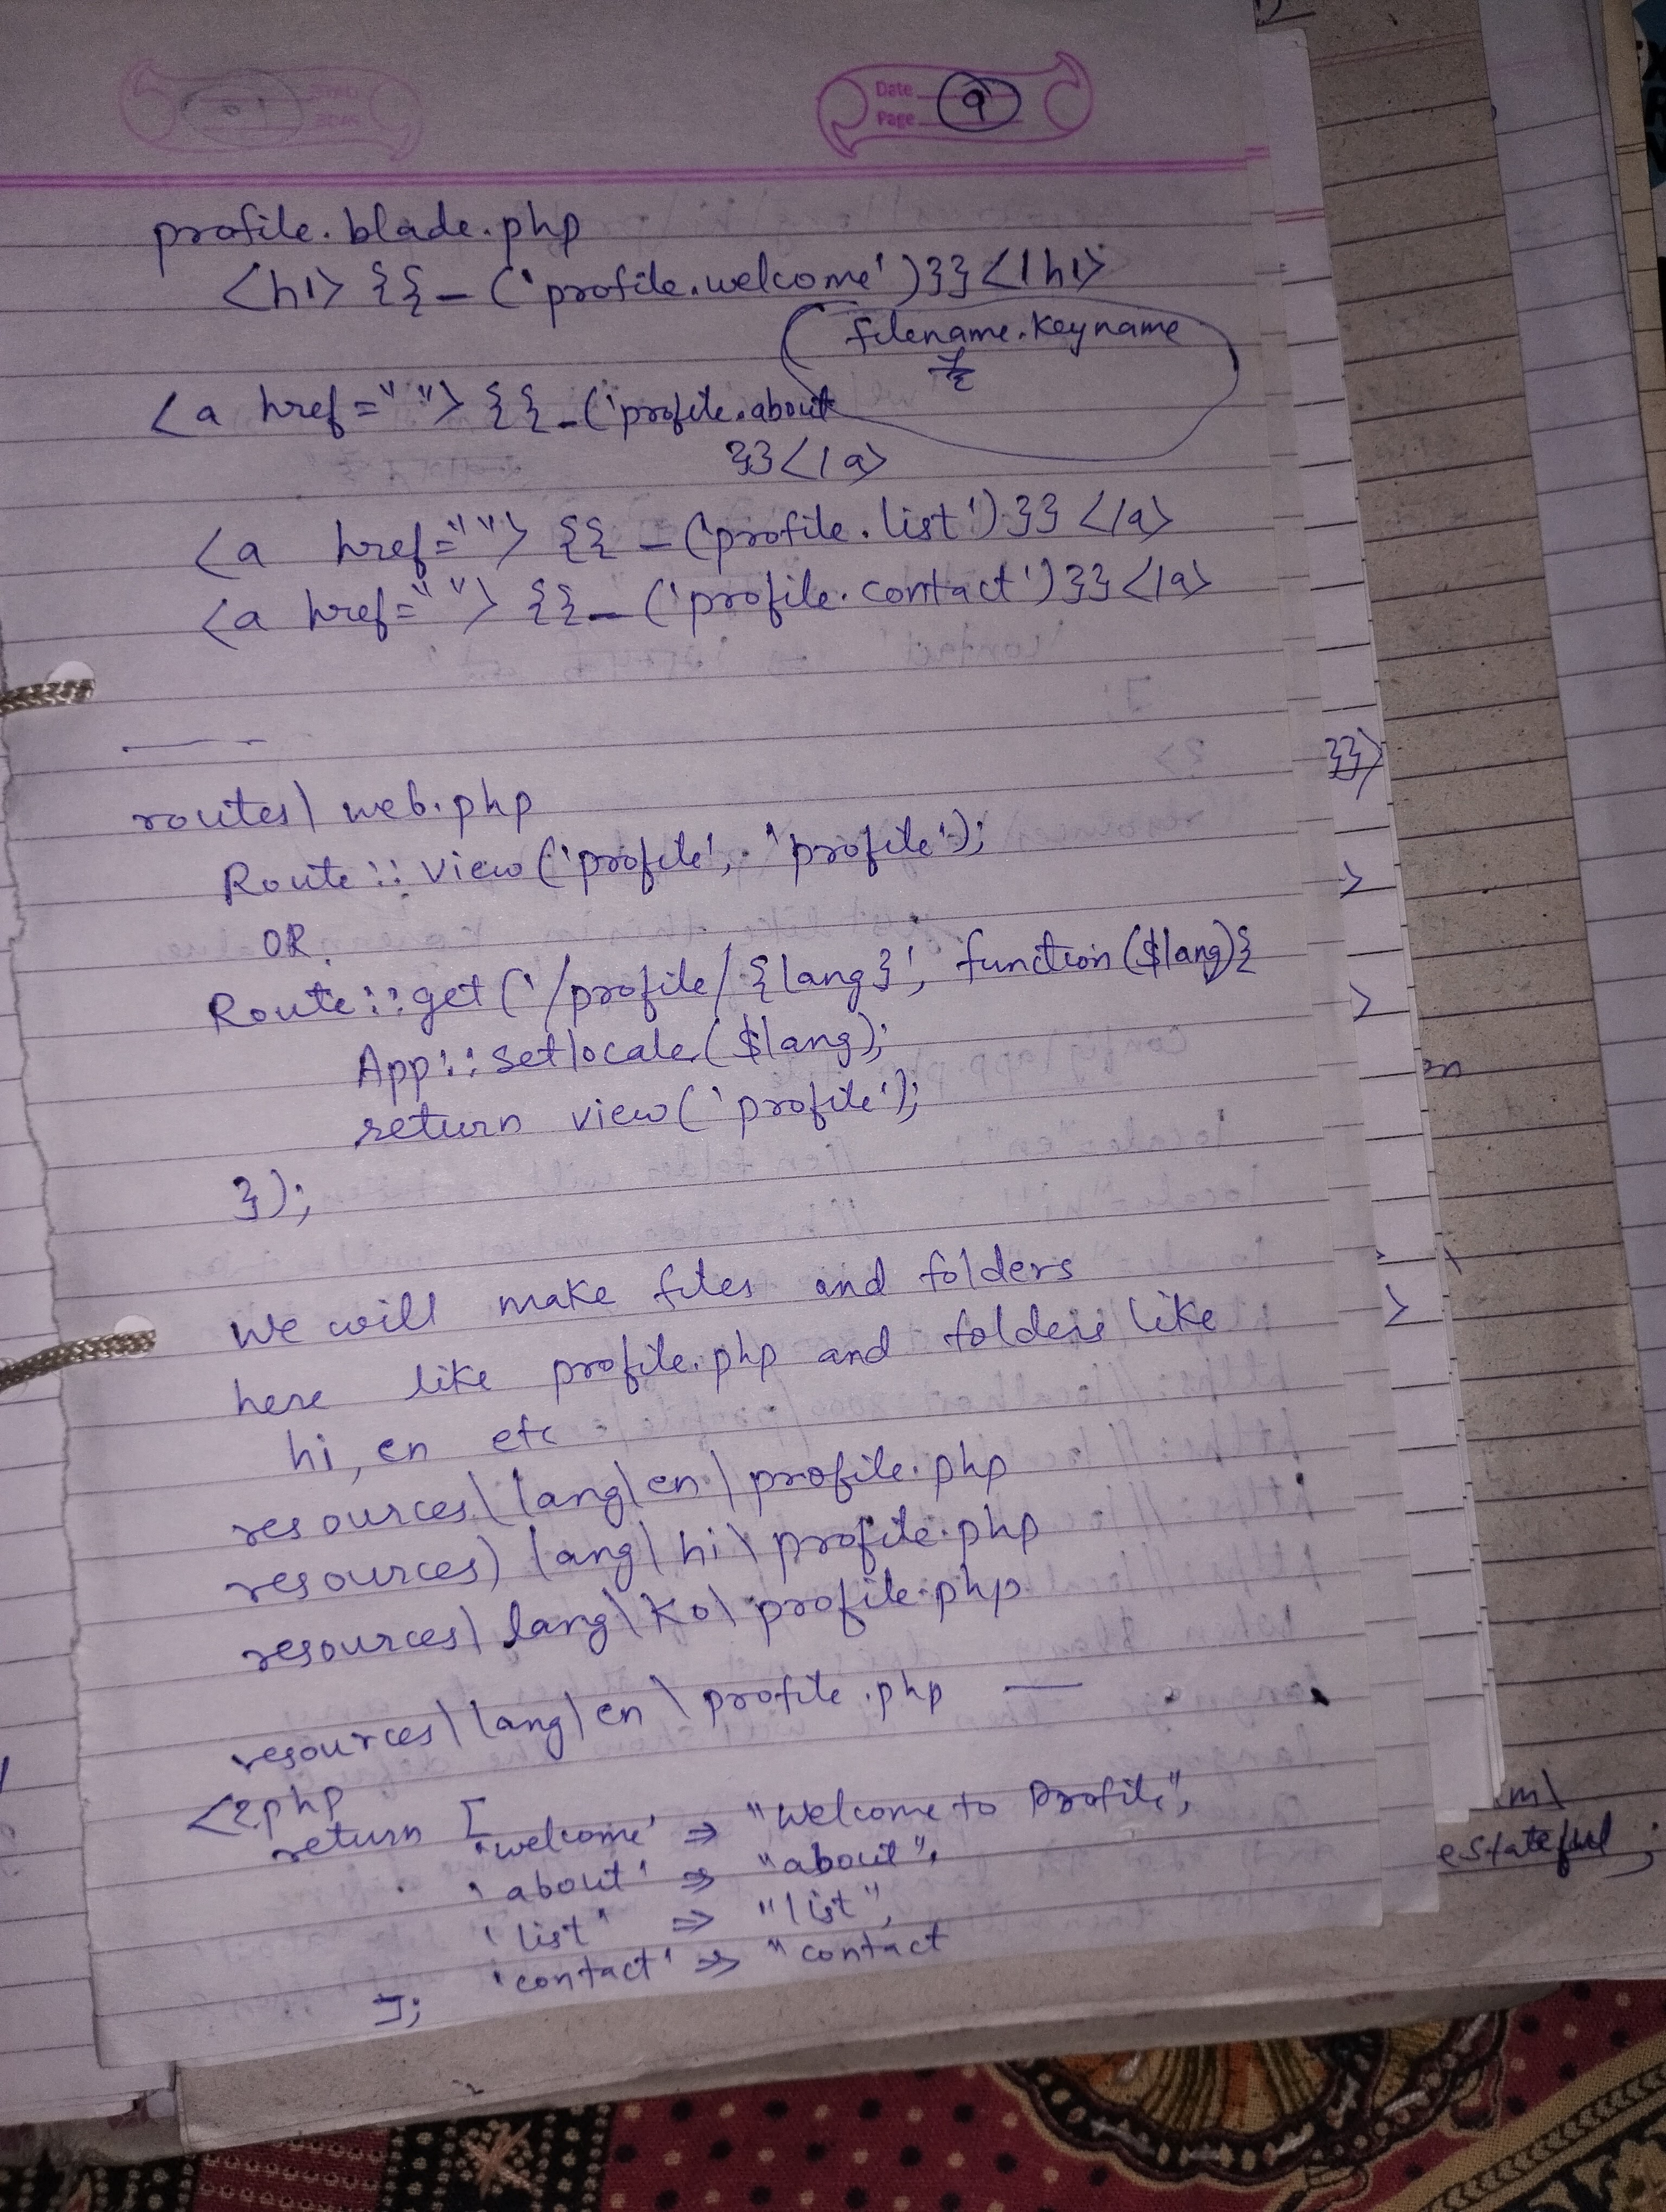 Date
Page 9
profile.blade.php
<h1> {{_ ('profile.welcome')}}</h1>
filename.keyname
है
<a href=""> {{_('profile.about
}}</a>
<a href=""> {{_('profile.list')}}</a>
<a href=""> {{_('profile.contact')}}</a>
routes\web.php
Route::view('profile', 'profile');
OR
Route::get('/profile/{lang}', function($lang){
App::setlocale($lang);
return view('profile');
});
We will make files and folders
here like profile.php and folders like
hi, en etc
resources\lang\en\profile.php
resources\lang\hi\profile.php
resources\lang\ko\profile.php
resources\lang\en\profile.php —
<?php
return [
'welcome' => "Welcome to Profile",
'about' => "about",
'list' => "list",
'contact' => "contact
];
}})
>
>
>
en
m\
estateful;